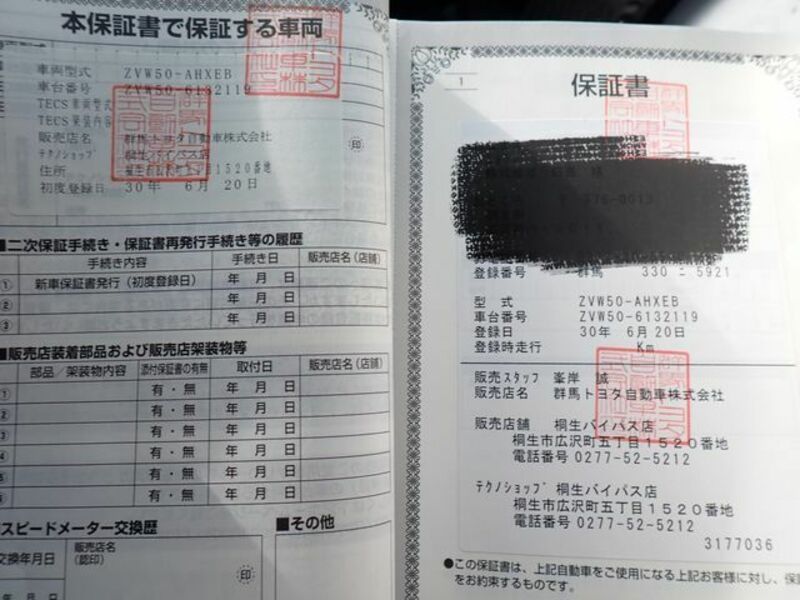 本保証書で保証する車両
車両型式 ZVW50-AHXEB
車台番号 ZVW50-6132119
TECS車両型式
TECS架装内容
販売店名 群馬トヨタ自動車株式会社
テクノショップ 桐生バイパス店
住所 1520番地
初度登録日 30年 6月 20日
印
■二次保証手続き・保証書再発行手続き等の履歴
手続き内容 手続き日 販売店名(店舗)
① 新車保証書発行(初度登録日) 年 月 日
② 年 月 日
③ 年 月 日
■販売店装着部品および販売店架装物等
部品/架装物内容 添付保証書の有無 取付日 販売店名(店舗)
① 有・無 年 月 日
② 有・無 年 月 日
③ 有・無 年 月 日
④ 有・無 年 月 日
⑤ 有・無 年 月 日
有・無 年 月 日
スピードメーター交換歴
交換年月日 販売店名(認印)
印
年 月 日
■その他
1
保証書
登録番号 群馬 330 ニ 5921
型式 ZVW50-AHXEB
車台番号 ZVW50-6132119
登録日 30年 6月20日
登録時走行 Km
販売スタッフ 峯岸 誠
販売店名 群馬トヨタ自動車株式会社
販売店舗 桐生バイパス店
桐生市広沢町五丁目1520番地
電話番号 0277-52-5212
テクノショップ 桐生バイパス店
桐生市広沢町五丁目1520番地
電話番号 0277-52-5212
3177036
●この保証書は、上記自動車をご使用になる上記お客様に対し、保証
をお約束するものです。